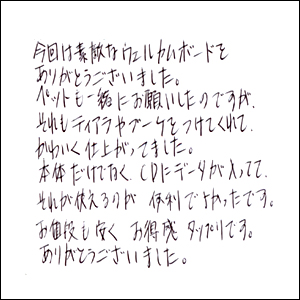 今回は素敵なウェルカムボードを
ありがとうございました。
ペットも一緒にお願いしたのですが、
それもティアラやブーケをつけてくれて、
かわいく仕上がってました。
本体だけでなく、CDにデータが入ってて、
それが使えるのが 便利でよかったです。
お値段も安く お得感 タップリです。
ありがとうございました。